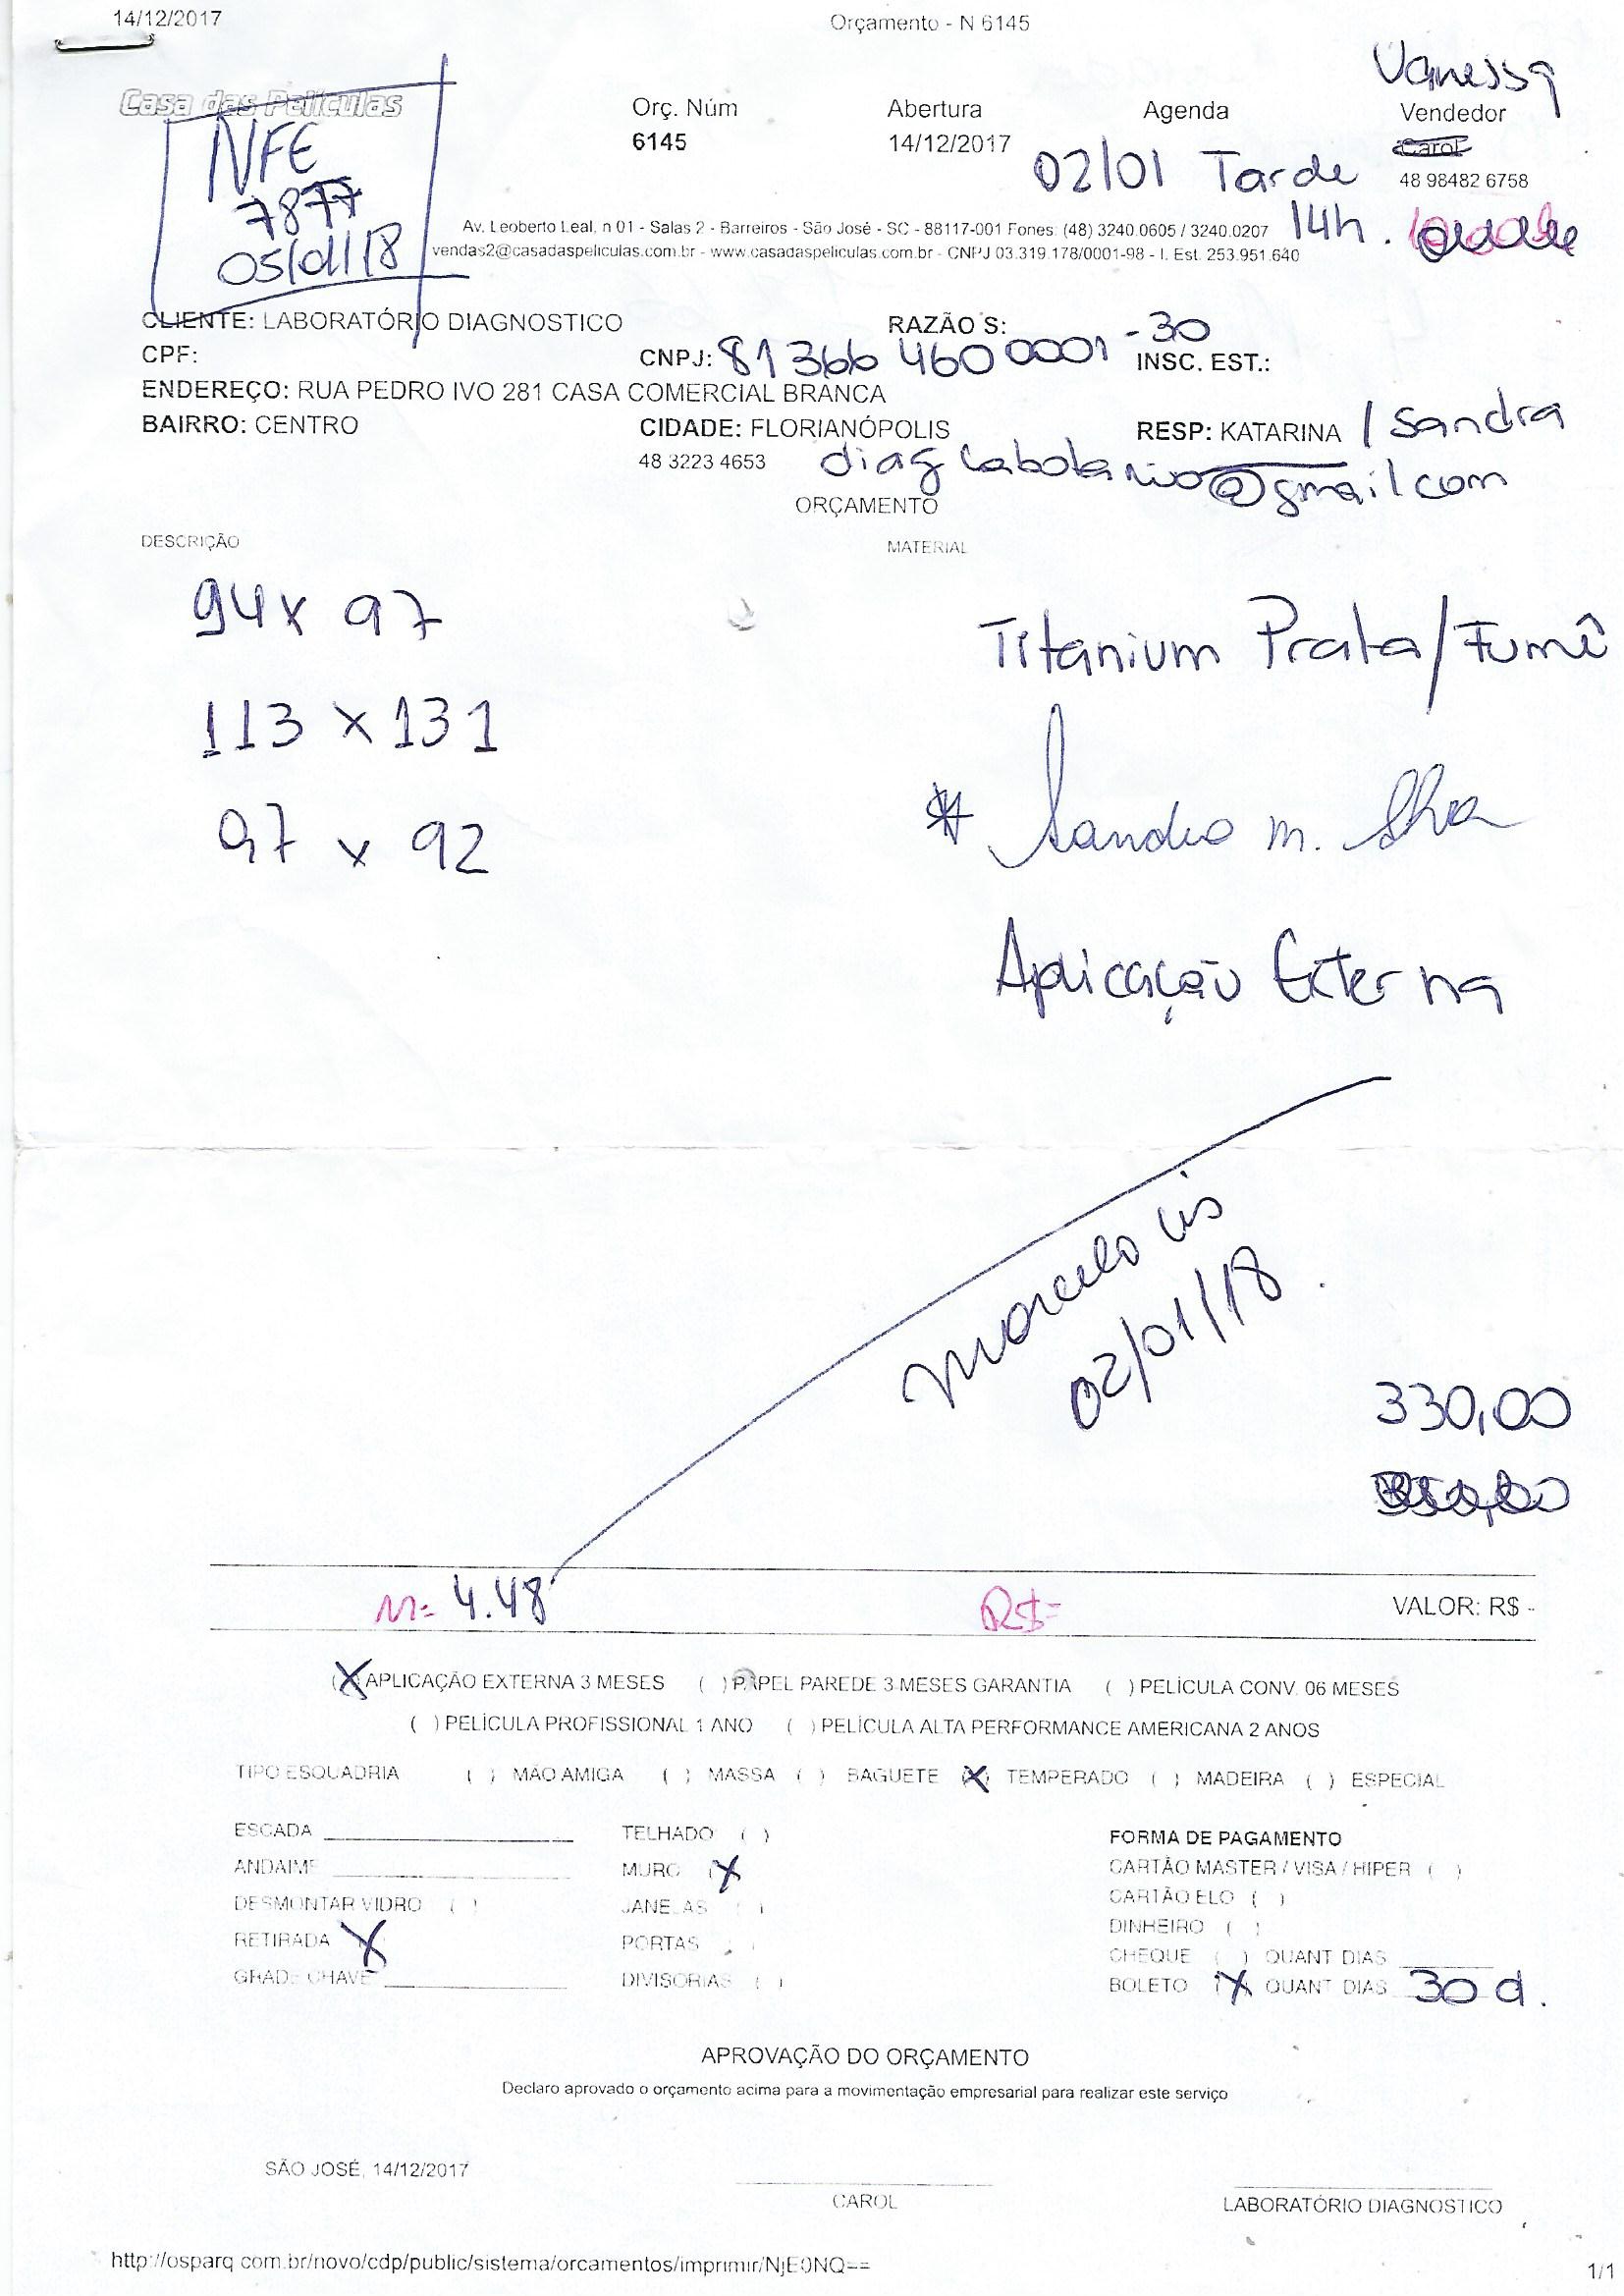 14/12/2017
Orçamento - N 6145
Vanessa
Casa das Películas
Orç. Núm
Abertura
Agenda
Vendedor
6145
14/12/2017
Carol
02/01 Tarde
48 98482 6758
14h.
NFE
7877
05/01/18
Av. Leoberto Leal, n 01 - Salas 2 - Barreiros - São José - SC - 88117-001 Fones: (48) 3240.0605 / 3240.0207
vendas2@casadaspeliculas.com.br - www.casadaspeliculas.com.br - CNPJ 03.319.178/0001-98 - I. Est. 253.951.640
CLIENTE: LABORATÓRIO DIAGNOSTICO
RAZÃO S:
CPF:
CNPJ: 81 366 460 0001 -30
INSC. EST.:
ENDEREÇO: RUA PEDRO IVO 281 CASA COMERCIAL BRANCA
BAIRRO: CENTRO
CIDADE: FLORIANÓPOLIS
RESP: KATARINA / Sandra
48 3223 4653
ORÇAMENTO
DESCRIÇÃO
MATERIAL
94 x 97
Titanium Prata/Fumê
113 x 131
97 x 92
Aplicação Externa
02/01/18.
330,00
M= 4.48
R$=
VALOR: R$ -
(X) APLICAÇÃO EXTERNA 3 MESES ( ) PAPEL PAREDE 3 MESES GARANTIA ( ) PELÍCULA CONV. 06 MESES
( ) PELÍCULA PROFISSIONAL 1 ANO ( ) PELÍCULA ALTA PERFORMANCE AMERICANA 2 ANOS
TIPO ESQUADRIA ( ) MÃO AMIGA ( ) MASSA ( ) BAGUETE (X) TEMPERADO ( ) MADEIRA ( ) ESPECIAL
ESCADA
TELHADO ( )
FORMA DE PAGAMENTO
ANDAIME
MURO (X)
CARTÃO MASTER / VISA / HIPER ( )
DESMONTAR VIDRO ( )
JANELAS ( )
CARTÃO ELO ( )
RETIRADA X
PORTAS ( )
DINHEIRO ( )
CHEQUE ( ) QUANT DIAS
GRADE CHAVE
DIVISORIAS ( )
BOLETO (X) QUANT DIAS 30 d.
APROVAÇÃO DO ORÇAMENTO
Declaro aprovado o orçamento acima para a movimentação empresarial para realizar este serviço
SÃO JOSÉ, 14/12/2017
CAROL
LABORATÓRIO DIAGNOSTICO
http://osparq.com.br/novo/cdp/public/sistema/orcamentos/imprimir/NjE0NQ==
1/1